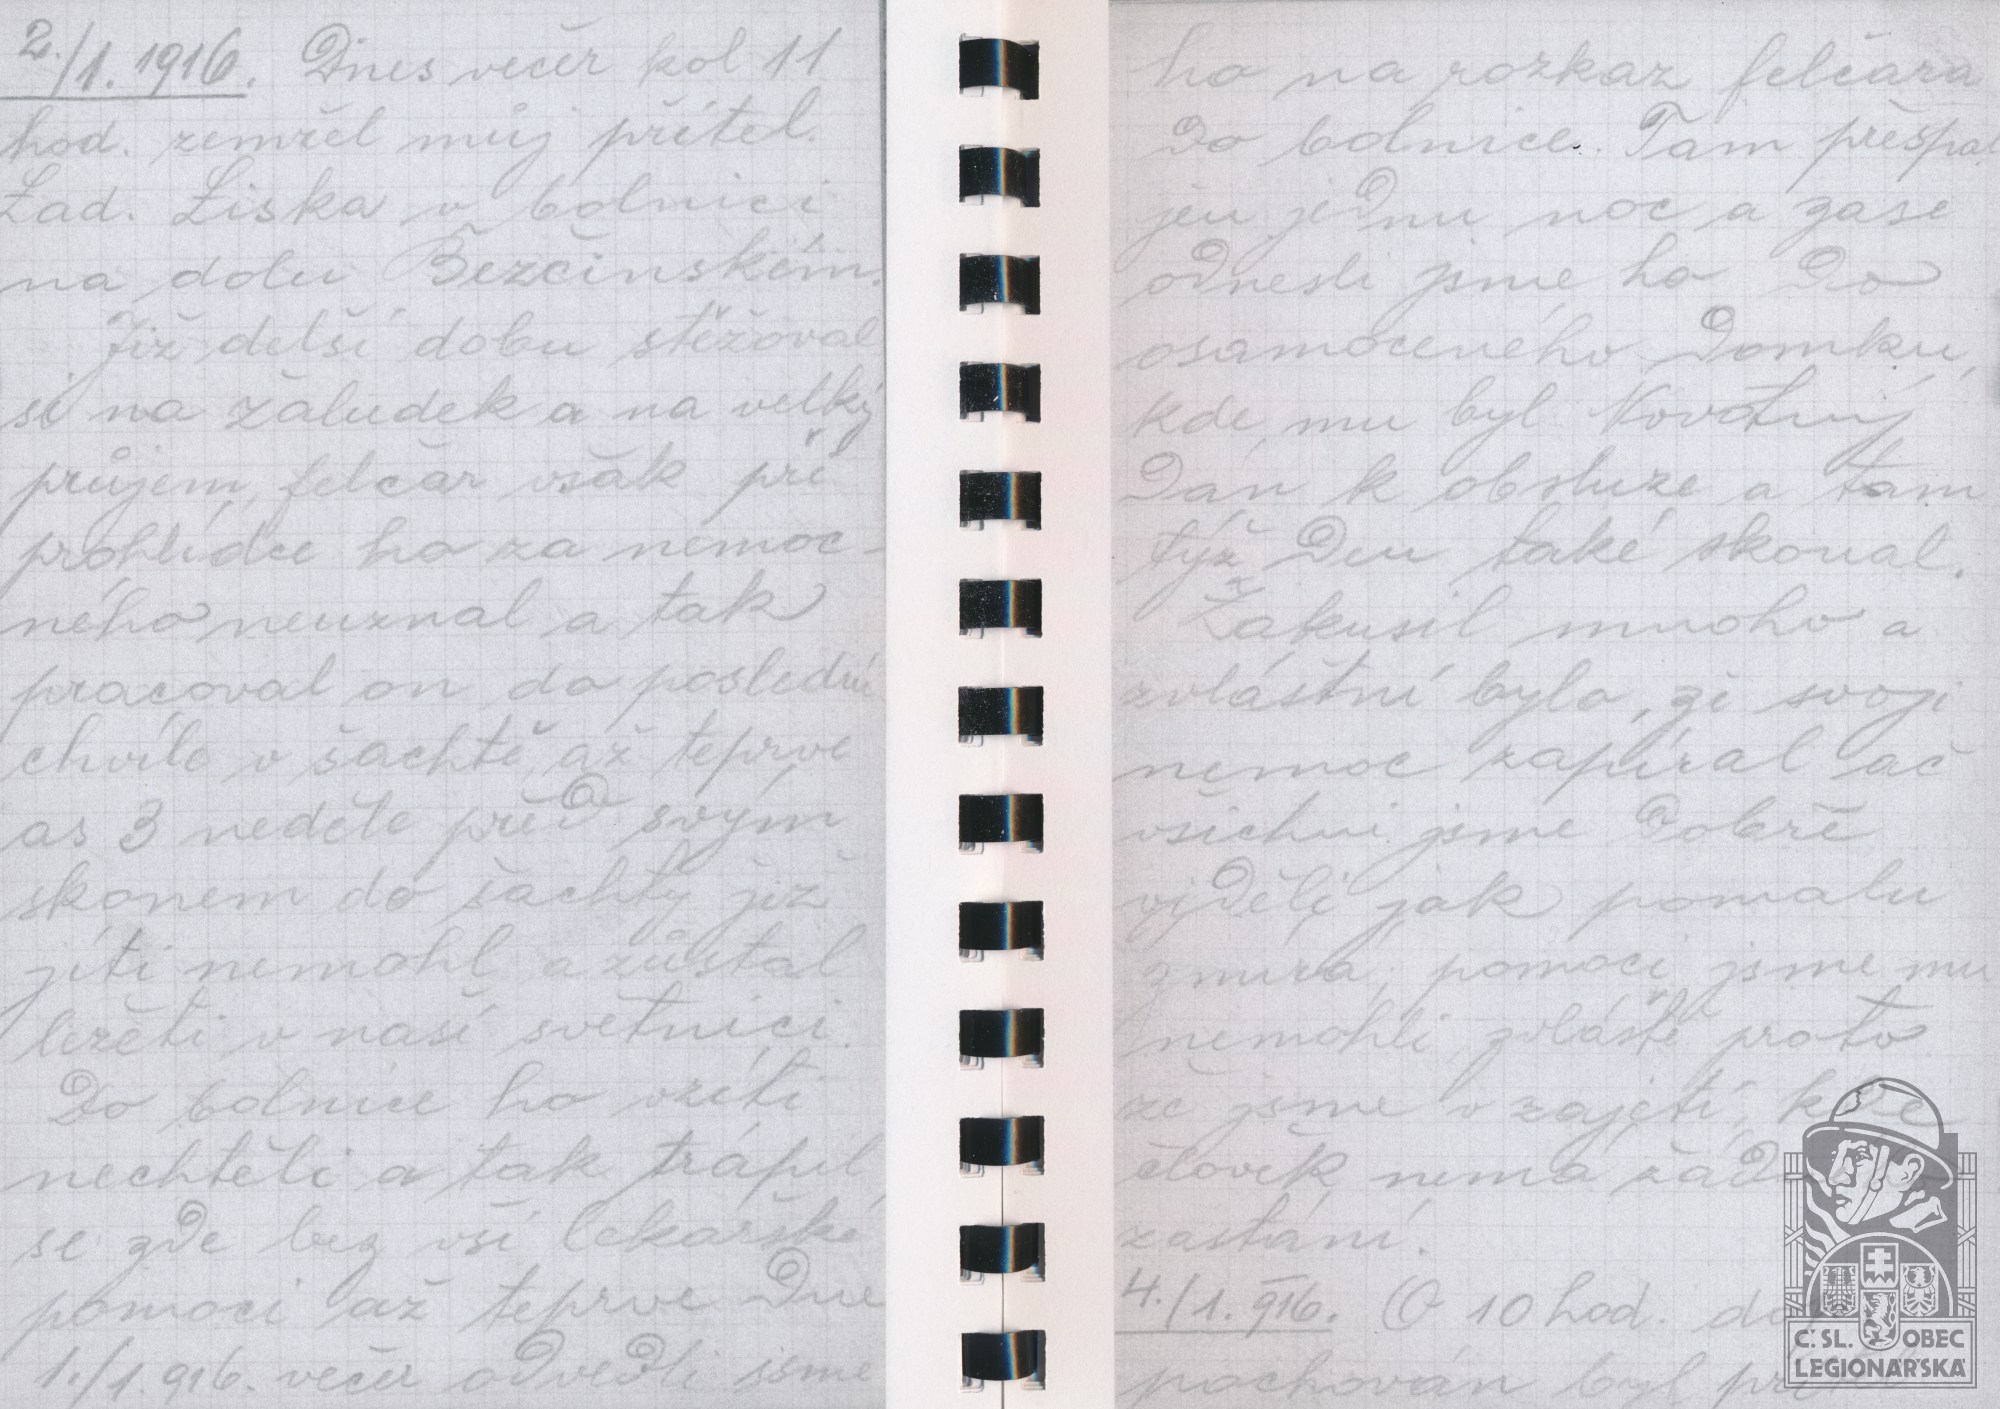 2./1. 1916. Dnes večer kol 11
hod. zemřel můj přítel.
Lad. Liska v bolnici
na dolu Bezčinském.
Již delší dobu stěžoval
si na žaludek a na velký
průjem, felčar však při
prohlídce ho za nemoc-
ného neuznal a tak
pracoval on do poslední
chvíle v šachtě, až teprve
as 3 neděle před svým
skonem do šachty již
jíti nemohl a zůstal
ležeti v naší světnici.
Do bolnice ho vzíti
nechtěli a tak trápil
se zde bez vší lékařské
pomoci až teprve dne
1./1. 916. večer odvedli jsme
ho na rozkaz felčara
do bolnice. Tam přespal
jen jednu noc a zase
odnesli jsme ho do
osamoceného domku,
kde mu byl Novotný
dán k obsluze a tam
týž den také skonal.
Zakusil mnoho a
zvláštní bylo, že svoji
nemoc zapíral ač
všichni jsme dobře
viděli jak pomalu
zmírá, pomoci jsme mu
nemohli zvláště proto
že jsme v zajetí, kde
člověk nemá
zastání.
4./1. 916. O 10 hod.
pochován byl
Č. SL. OBEC
LEGIONÁŘSKÁ